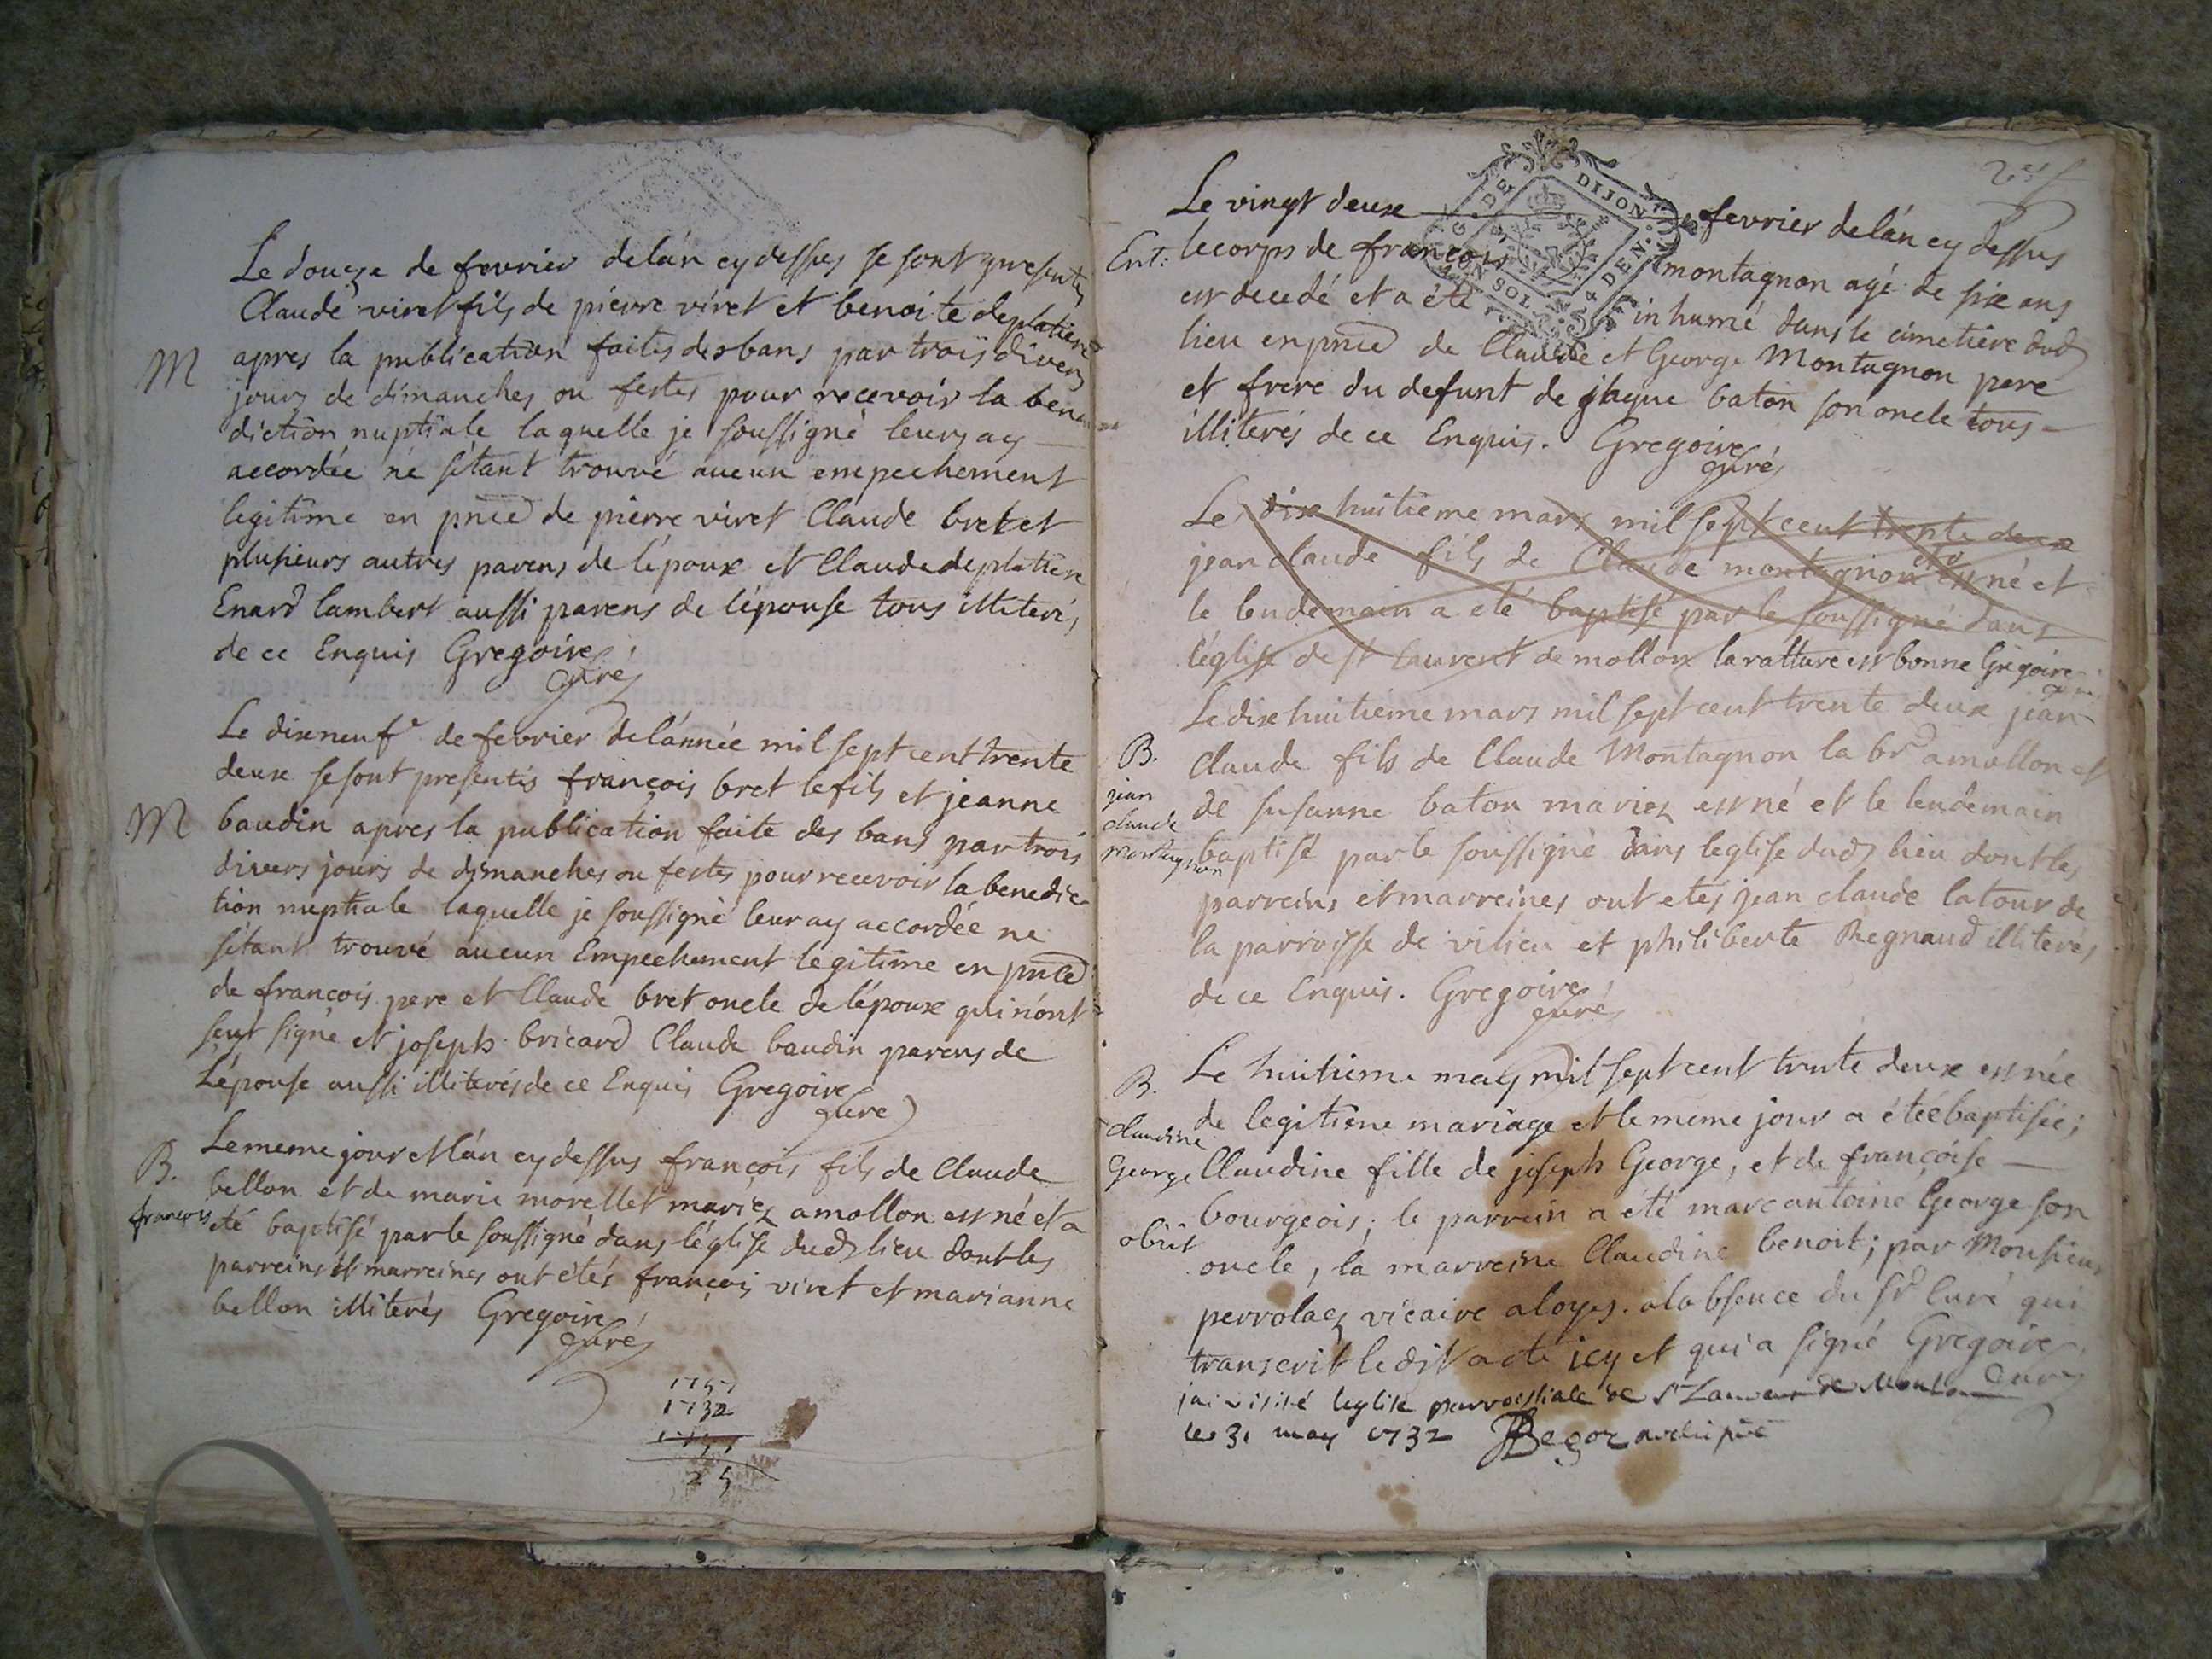 Le douze de fevrier de lán cy dessus se sont presentes
Claude viret fils de pierre viret et benoite deplatiere
M
apres la publication faites des bans par trois divers
jours de dimanches ou festes pour recevoir la bene
diction nuptiale laquelle je soussigné leurs ay
accordée ne sétant trouvé aucun empechement
legitime en pnce de pierre viret Claude bret et
plusieurs autres parens de lépoux et Claude deplatiere
Enard lambert aussi parens de lépouse tous illiterés
de ce Enquis Gregoire
curé
Le dixneufe de fevrier de lánnée mil sept cent trente
deux se sont presentés françois bret le fils et jeanne
M
baudin apres la publication faite des bans par trois
divers jours de dimanches ou festes pour recevoir la benedic
tion nuptiale laquelle je soussigné leur ay accordée ne
sétant trouvé aucun Empechement legitime en pnce
de françois pere et Claude bret oncle de lépoux qui nónt
signé et joseph bricard Claude baudin parens de
Lépouse aussi illiterés de ce Enquis Gregoire
curé
B.
françois
Le meme jour et lán cy dessus françois fils de Claude
bellon et de marie morellet mariez a mollon est né et a
eté baptisé par le soussigné dans léglise dud lieu dont les
parreins et marreines ont etés françois viret et marianne
bellon illiterés Gregoire
curé
1757
1732
25
G. DE DIJON
Le vingt deux fevrier de lán cy dessus
Ent:
le corps de françois montagnon agé de six ans
est decedé et a été inhumé dans le cimetiere dud
lieu en pnce de Claude et George Montagnon pere
et frere du defunt de jaque baton son oncle tous
illiterés de ce Enquis. Gregoire
curé
Le dix huitieme mars mil sept cent trente deux
jean claude fils de Claude montagnon est né et
le lendemain a eté baptisé par le soussigné dans
léglise de st laurent de mollon la ratture est bonne Gregoire
curé
B.
jean
claude
montagnon
Le dix huitieme mars mil sept cent trente deux jean
claude fils de Claude Montagnon la br a mollon et
de susanne baton mariez est né et le lendemain
baptisé par le soussigné dans leglise dud lieu dont les
parreins et marreines ont etés jean claude latour de
la parroisse de vilieu et philiberte Regnaud illiterés
de ce Enquis. Gregoire
curé
B.
claudine
George
obiit
Le huitieme may mil sept cent trente deux est née
de legitime mariage et le meme jour a étéé baptisée;
Claudine fille de joseph George, et de françoise
bourgeois; le parrein a été marc antoine George son
oncle, la marreine Claudine benoit; par Monsieur
perrolaz vicaire a loyes. a labsence du Sr Curé qui
transcrit le dit acte icy et qui a signé Gregoire
curé
jai visité leglise parroissiale de St Laurent de Mollon
le 31 may 1732 Begoz archipre